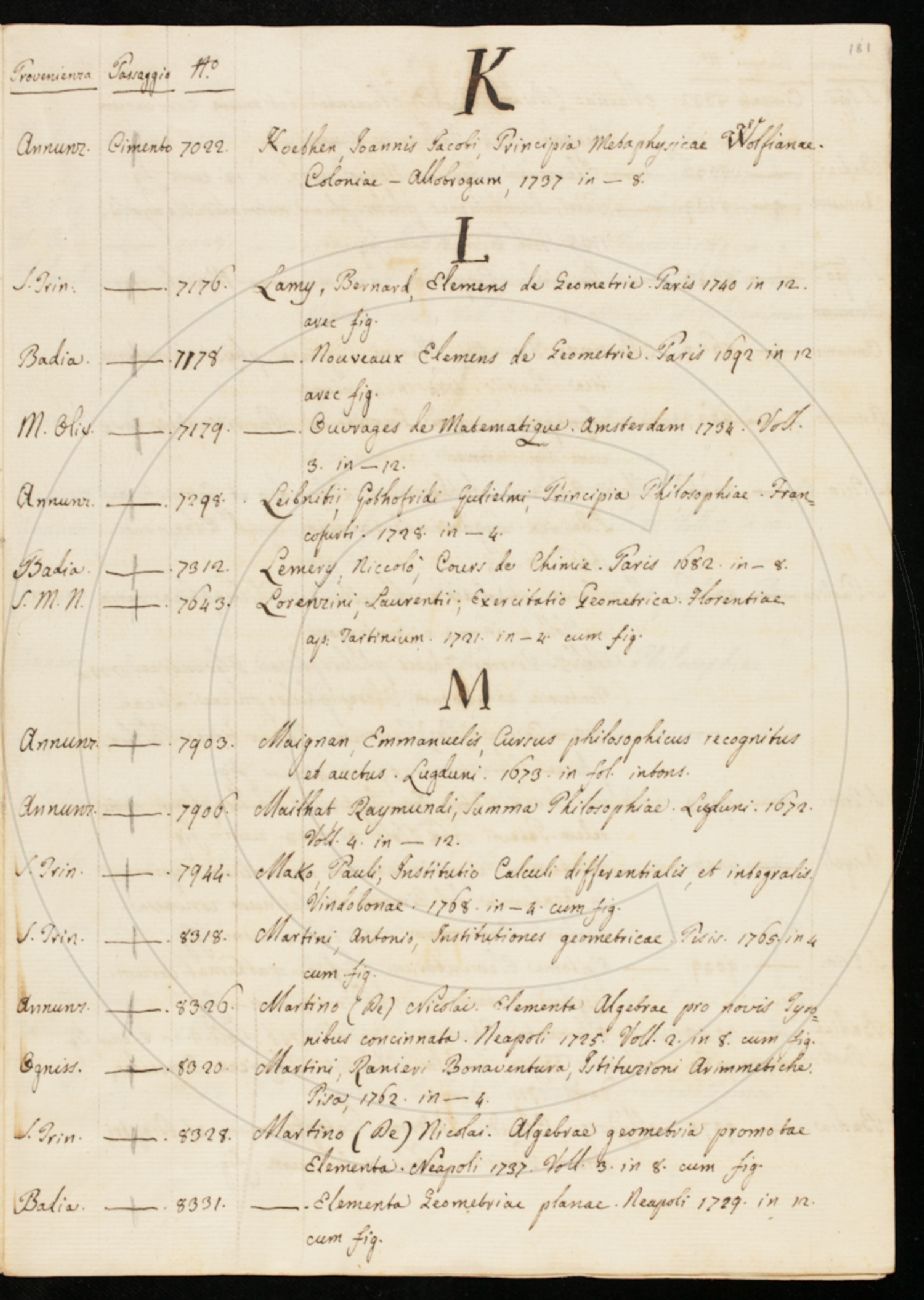 181
Provenienza Passaggio No.
K
Annunz. Cimento 7022. Koethen, Joannis Jacobi, Principia Metaphysicae Wolfianae.
Coloniae – Allobrogum, 1737 in – 8.
L
S. Trin. 7176. Lamy, Bernard, Elemens de Geometrie. Paris 1740 in 12.
avec fig.
Badia. 7178 —. Nouveaux Elemens de Geometrie. Paris 1692 in 12
avec fig.
M. Oliv. 7179. —. Ouvrages de Matematique. Amsterdam 1734. Voll.
3. in – 12.
Annunz. 7298. Leibnitii, Gothofridi Gulielmi, Principia Philosophiae. Fran=
cofurti. 1728. in – 4.
Badia. 7312. Lemery, Niccolò, Cours de Chimie. Paris 1682. in – 8.
S. M. N. 7643. Lorenzini, Laurentii, Exercitatio Geometrica. Florentiae
ap. Tartinium. 1721. in – 4. cum fig.
M
Annunz. 7903. Maignan, Emmanuelis, Cursus philosophicus recognitus
et auctus. Lugduni. 1673. in fol. intons.
Annunz. 7906. Mailhat Raymundi, Summa Philosophiae. Lugduni. 1672.
Voll. 4. in – 12.
S. Trin. 7944. Mako, Pauli, Institutio Calculi differentialis, et integralis.
Vindobonae. 1768. in – 4. cum fig.
S. Trin. 8318. Martini, Antonio, Institutiones geometricae Pisis. 1765. in 4
cum fig.
Annunz. 8326. Martino (De) Nicolai. Elementa Algebrae pro novis Tyro=
nibus concinnata. Neapoli 1725. Voll. 2. in 8. cum fig.
Ogniss. 8320. Martini, Ranieri Bonaventura, Istituzioni Arimmetiche.
Pisa, 1762. in – 4.
S. Trin. 8328. Martino (De) Nicolai. Algebrae geometria promotae
Elementa. Neapoli 1737. Voll. 3. in 8. cum fig.
Badia. 8331. —. Elementa Geometriae planae. Neapoli 1729. in 12.
cum fig.